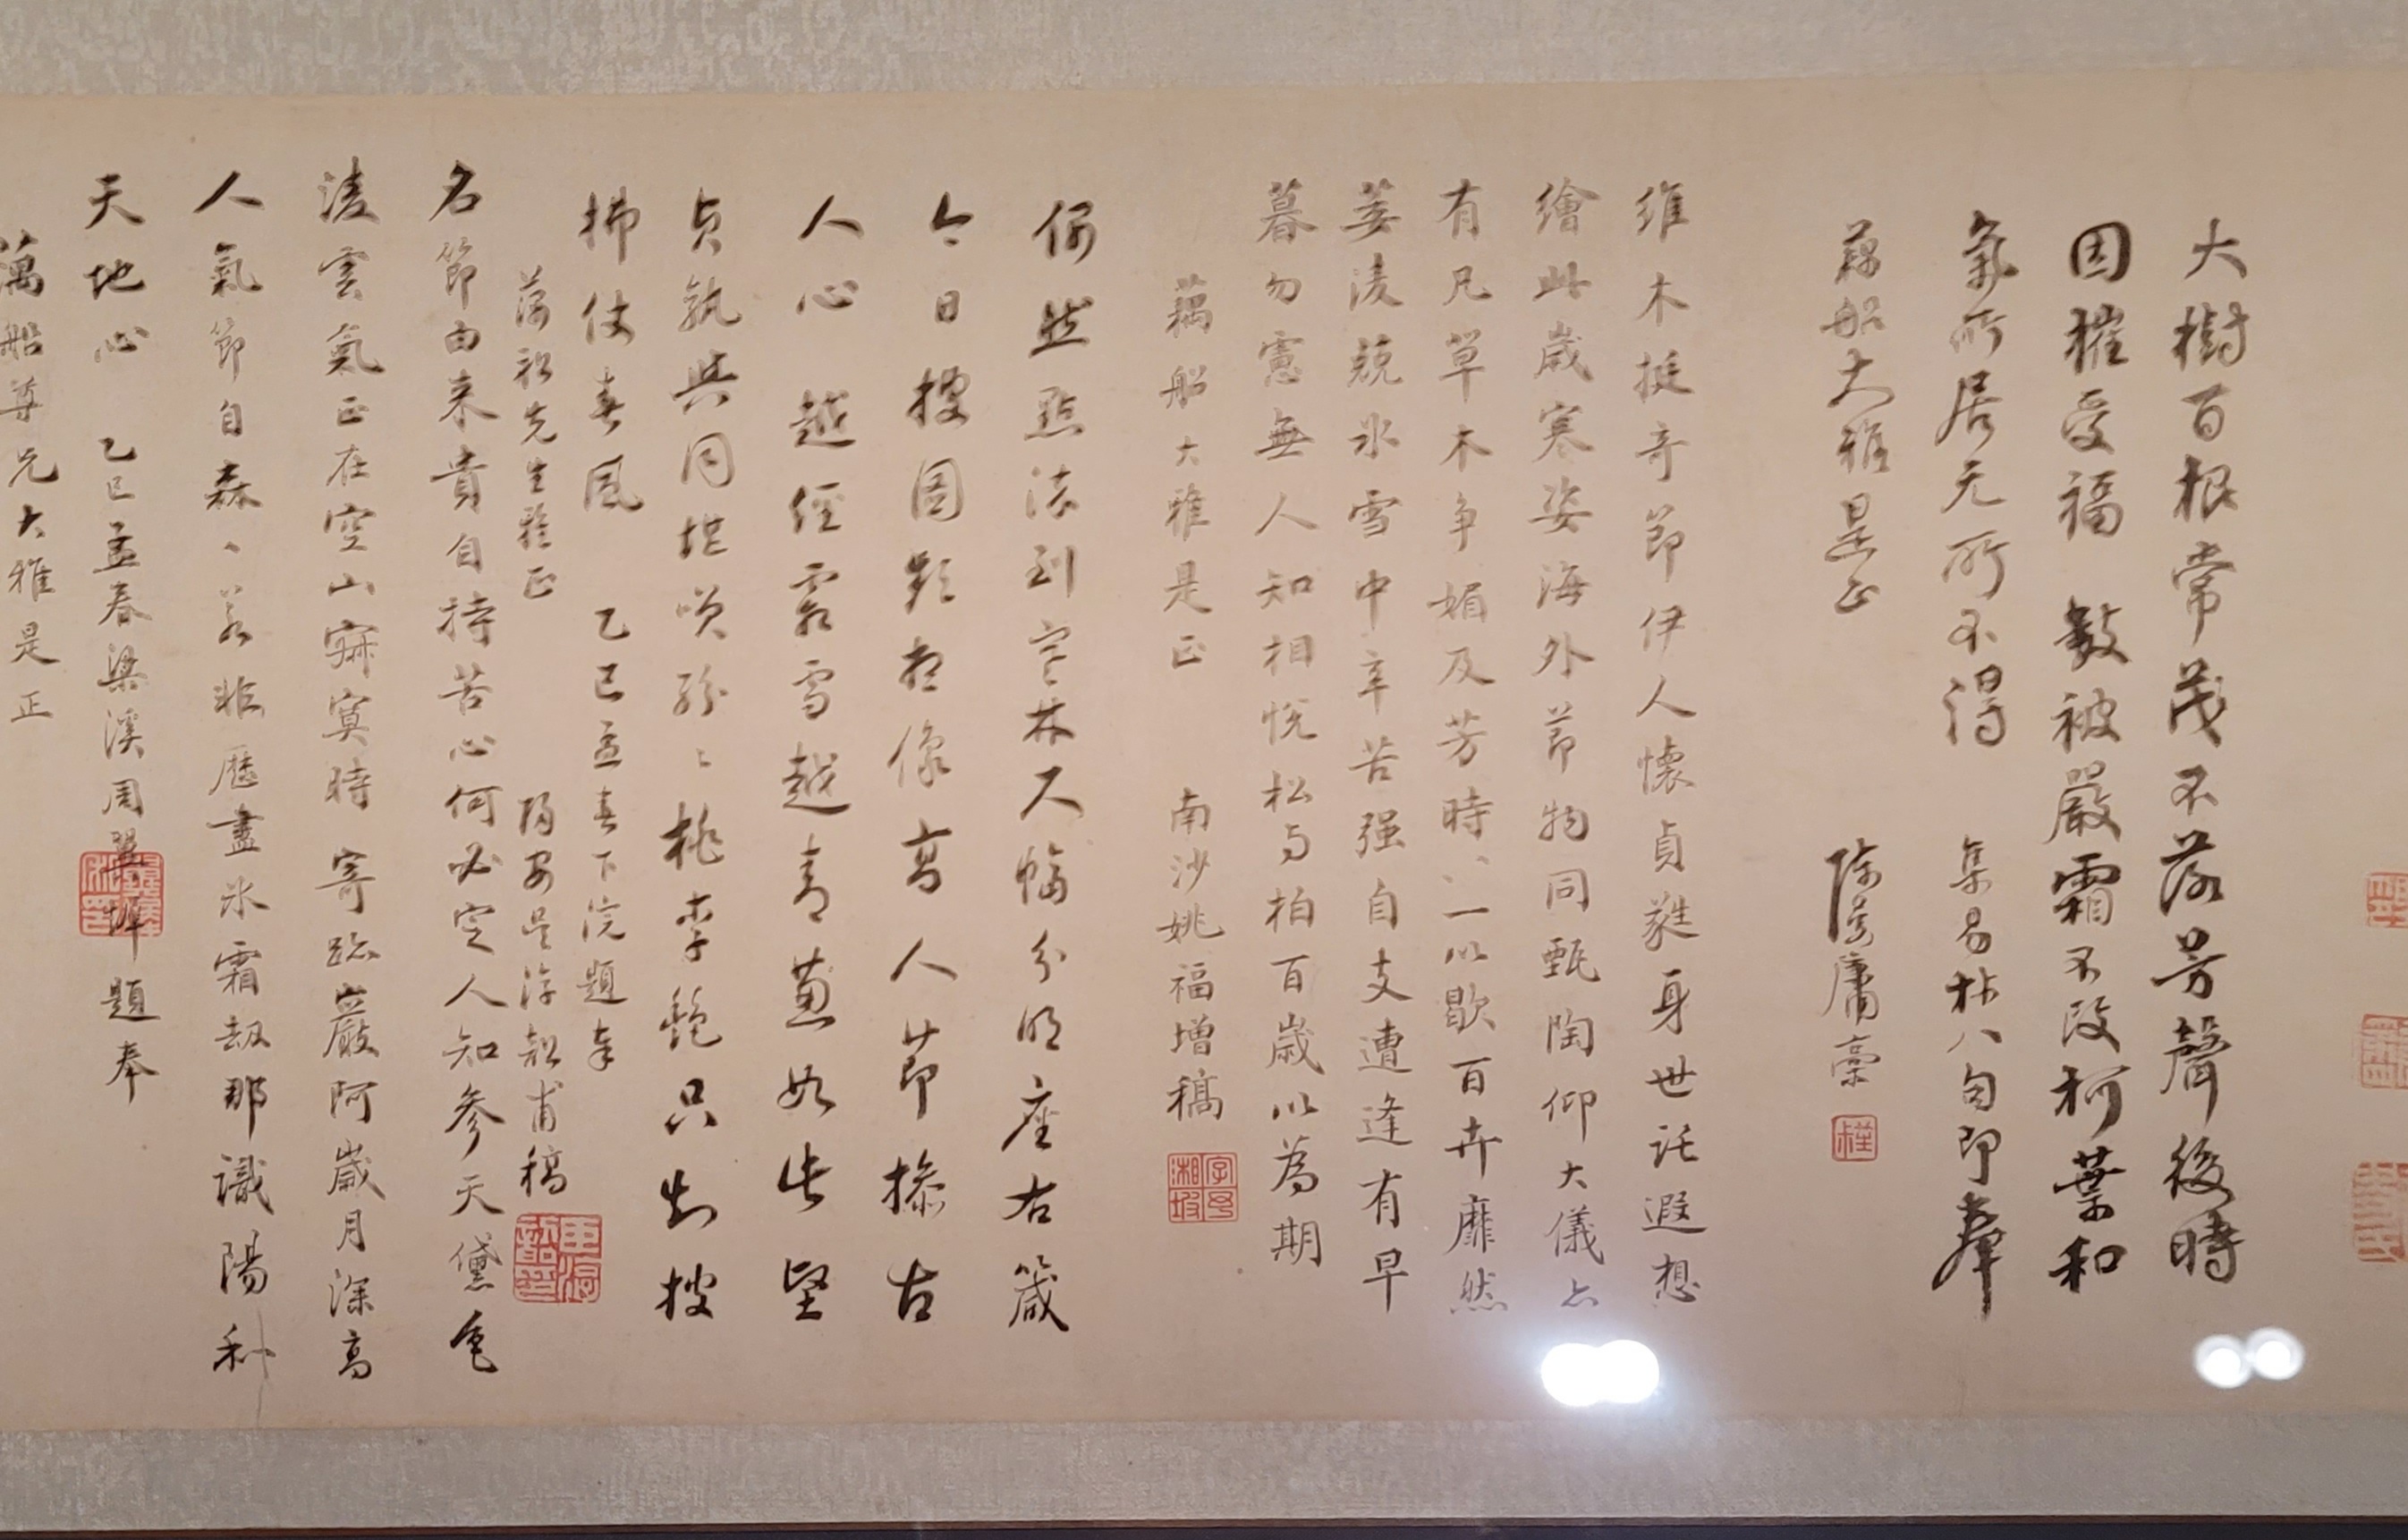 大樹百根常茂不落芳聲後時
因摧受福數被嚴霜不改柯葉和
氣所居无所不得
集易林八句即奉
藕船大雅是正
陳慶庸稾
維木挺奇節伊人懷貞蕤身世託遐想
繪此歲寒姿海外節物同甄陶仰大儀亦
有凡草木爭媚及芳時〻一以歇百卉靡然
萎淩兢氷雪中辛苦强自支遭逢有早
暮勿慮無人知相悅松与柏百歲以為期
藕船大雅是正 南沙姚福增稿
依然點漆到寒林尺幅分明座右箴
今日披圖歎想像高人節操古
人心 越經霜雪越青蔥如此堅
貞孰與同堪笑紛〻桃李艷只知披
拂仗春風 乙巳孟春下浣題奉
藕船先生雅正
名節由来貴自持苦心何必定人知參天黛色
淩雲氣正在空山寂寞時 寄跡巖阿歲月深高
人氣節自森〻若非歷盡氷霜劫那識陽和
天地心 乙巳孟春梁溪周 題奉
藕船尊兄大雅是正